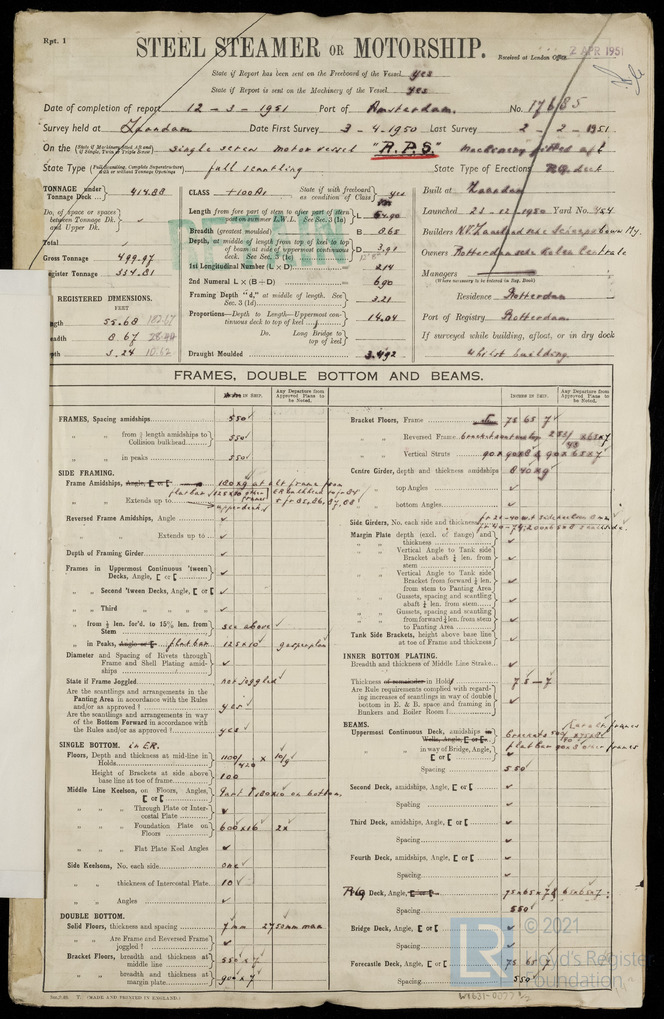 Rpt. 1
STEEL STEAMER OR MOTORSHIP.
Received at London Office 2 APR 1951
State if Report has been sent on the Freeboard of the Vessel yes
State if Report is sent on the Machinery of the Vessel. yes
Date of completion of report 12 - 3 - 1951 Port of Amsterdam. No. 17685
Survey held at Zaandam Date First Survey 3 - 4 - 1950 Last Survey 2 - 2 - 1951
On the (State if Machinery fitted Aft and if Single, Twin or Triple Screw) single screw motor vessel "A.P.S." machinery fitted aft
State Type (Full Scantling, Complete Superstructure, with or without Tonnage Openings) full scantling State Type of Erections
TONNAGE under Tonnage Deck ... 414.88
Do. of space or spaces between Tonnage Dk. and Upper Dk.
Total
Gross Tonnage 499.97
Register Tonnage
REGISTERED DIMENSIONS.
FEET
55.68 182.67
8.67 28.44
3.24 10.62
CLASS +100A1 State if with freeboard as condition of Class yes
Length from fore part of stem to after part of stern post on summer L.W.L. See Sec. 3 (1a) L 54.90
Breadth (greatest moulded) B 8.65
Depth, at middle of length from top of keel to top of beam at side of uppermost continuous deck. See Sec. 3 (1c) D 3.91
1st Longitudinal Number (L × D) 214
2nd Numeral L × (B + D) 690
Framing Depth "d," at middle of length. See Sec. 3 (1d) 3.21
Proportions—Depth to Length—Uppermost continuous deck to top of keel 14.04
Do. Long Bridge to top of keel
Draught Moulded 3.492
Built at Zaandam
Launched 23 - 12 - 1950 Yard No. 454
Builders N.V.
Owners Rotterdamsche Kolen Centrale
Managers
(Where necessary to be entered in Reg. Book)
Residence Rotterdam
Port of Registry Rotterdam
If surveyed while building, afloat, or in dry dock
Whilst building
FRAMES, DOUBLE BOTTOM AND BEAMS.
IN SHIP. Any Departure from Approved Plans to be Noted.
INCHES IN SHIP. Any Departure from Approved Plans to be Noted.
FRAMES, Spacing amidships 550
" " from ⅗ length amidships to Collision bulkhead 550
" " in peaks 550
SIDE FRAMING.
Frame Amidships, Angle, [ or [
" " Extends up to
Reversed Frame Amidships, Angle
" " Extends up to
Depth of Framing Girder
Frames in Uppermost Continuous 'tween Decks, Angle, [ or [
" " Second 'tween Decks, Angle, [ or [
" " Third " "
" " from ⅗ len. for'd. to 15% len. from Stem see above
" " in Peaks, Angle or [ flat bar 125×10 as per plan
Diameter and Spacing of Rivets through Frame and Shell Plating amidships
State if Frame Joggled not joggled
Are the scantlings and arrangements in the Panting Area in accordance with the Rules and/or as approved ? yes
Are the scantlings and arrangements in way of the Bottom Forward in accordance with the Rules and/or as approved ? yes
SINGLE BOTTOM. in E.R.
Floors, Depth and thickness at mid-line in Holds 1100/420 × 10/9
Height of Brackets at side above base line at toe of frame 100
Middle Line Keelson, on Floors, Angles, [ or [
" " " Through Plate or Intercostal Plate
" " " Foundation Plate on Floors 600×16 2×
" " " Flat Plate Keel Angles
Side Keelsons, No. each side one
" " thickness of Intercostal Plate 10
" " Angles
DOUBLE BOTTOM.
Solid Floors, thickness and spacing 7 mm 2750 mm max
" " Are Frame and Reversed Frame joggled ?
Bracket Floors, breadth and thickness at middle line 550×7
" " breadth and thickness at margin plate 900×7
Bracket Floors, Frame 75 65 7
" " Reversed Frame
" " Vertical Struts 90×90×8 & 90×65×7
Centre Girder, depth and thickness amidships 840×9
" " top Angles
" " bottom Angles
Side Girders, No. each side and thickness
Margin Plate depth (excl. of flange) and thickness
" " Vertical Angle to Tank side Bracket abaft ¼ len. from stem
" " Vertical Angle to Tank side Bracket from forward ¼ len. from stem to Panting Area
" " Gussets, spacing and scantling abaft ¼ len. from stem
" " Gussets, spacing and scantling from forward ¼ len. from stem to Panting Area
Tank Side Brackets, height above base line at toe of Frame and thickness
INNER BOTTOM PLATING.
Breadth and thickness of Middle Line Strake
Thickness of remainder in Hold 7 5 — 7
Are Rule requirements complied with regarding increases of scantlings in way of double bottom in E. & B. space and framing in Bunkers and Boiler Room ?
BEAMS.
Uppermost Continuous Deck, amidships
in Wells, Angle, [ or [
" " in way of Bridge, Angle, [ or [
Spacing 550
Second Deck, amidships, Angle, [ or [
Spacing
Third Deck, amidships, Angle, [ or [
Spacing
Fourth Deck, amidships, Angle, [ or [
Spacing
Deck, Angle, [ or [ 75×65×7 & 65×65×7
Spacing 550
Bridge Deck, Angle, [ or [
Spacing
Forecastle Deck, Angle, [ or [ 75 65 7
Spacing 550
(MADE AND PRINTED IN ENGLAND.)
© 2021
LR
Lloyd's Register
Foundation
W1631-0077